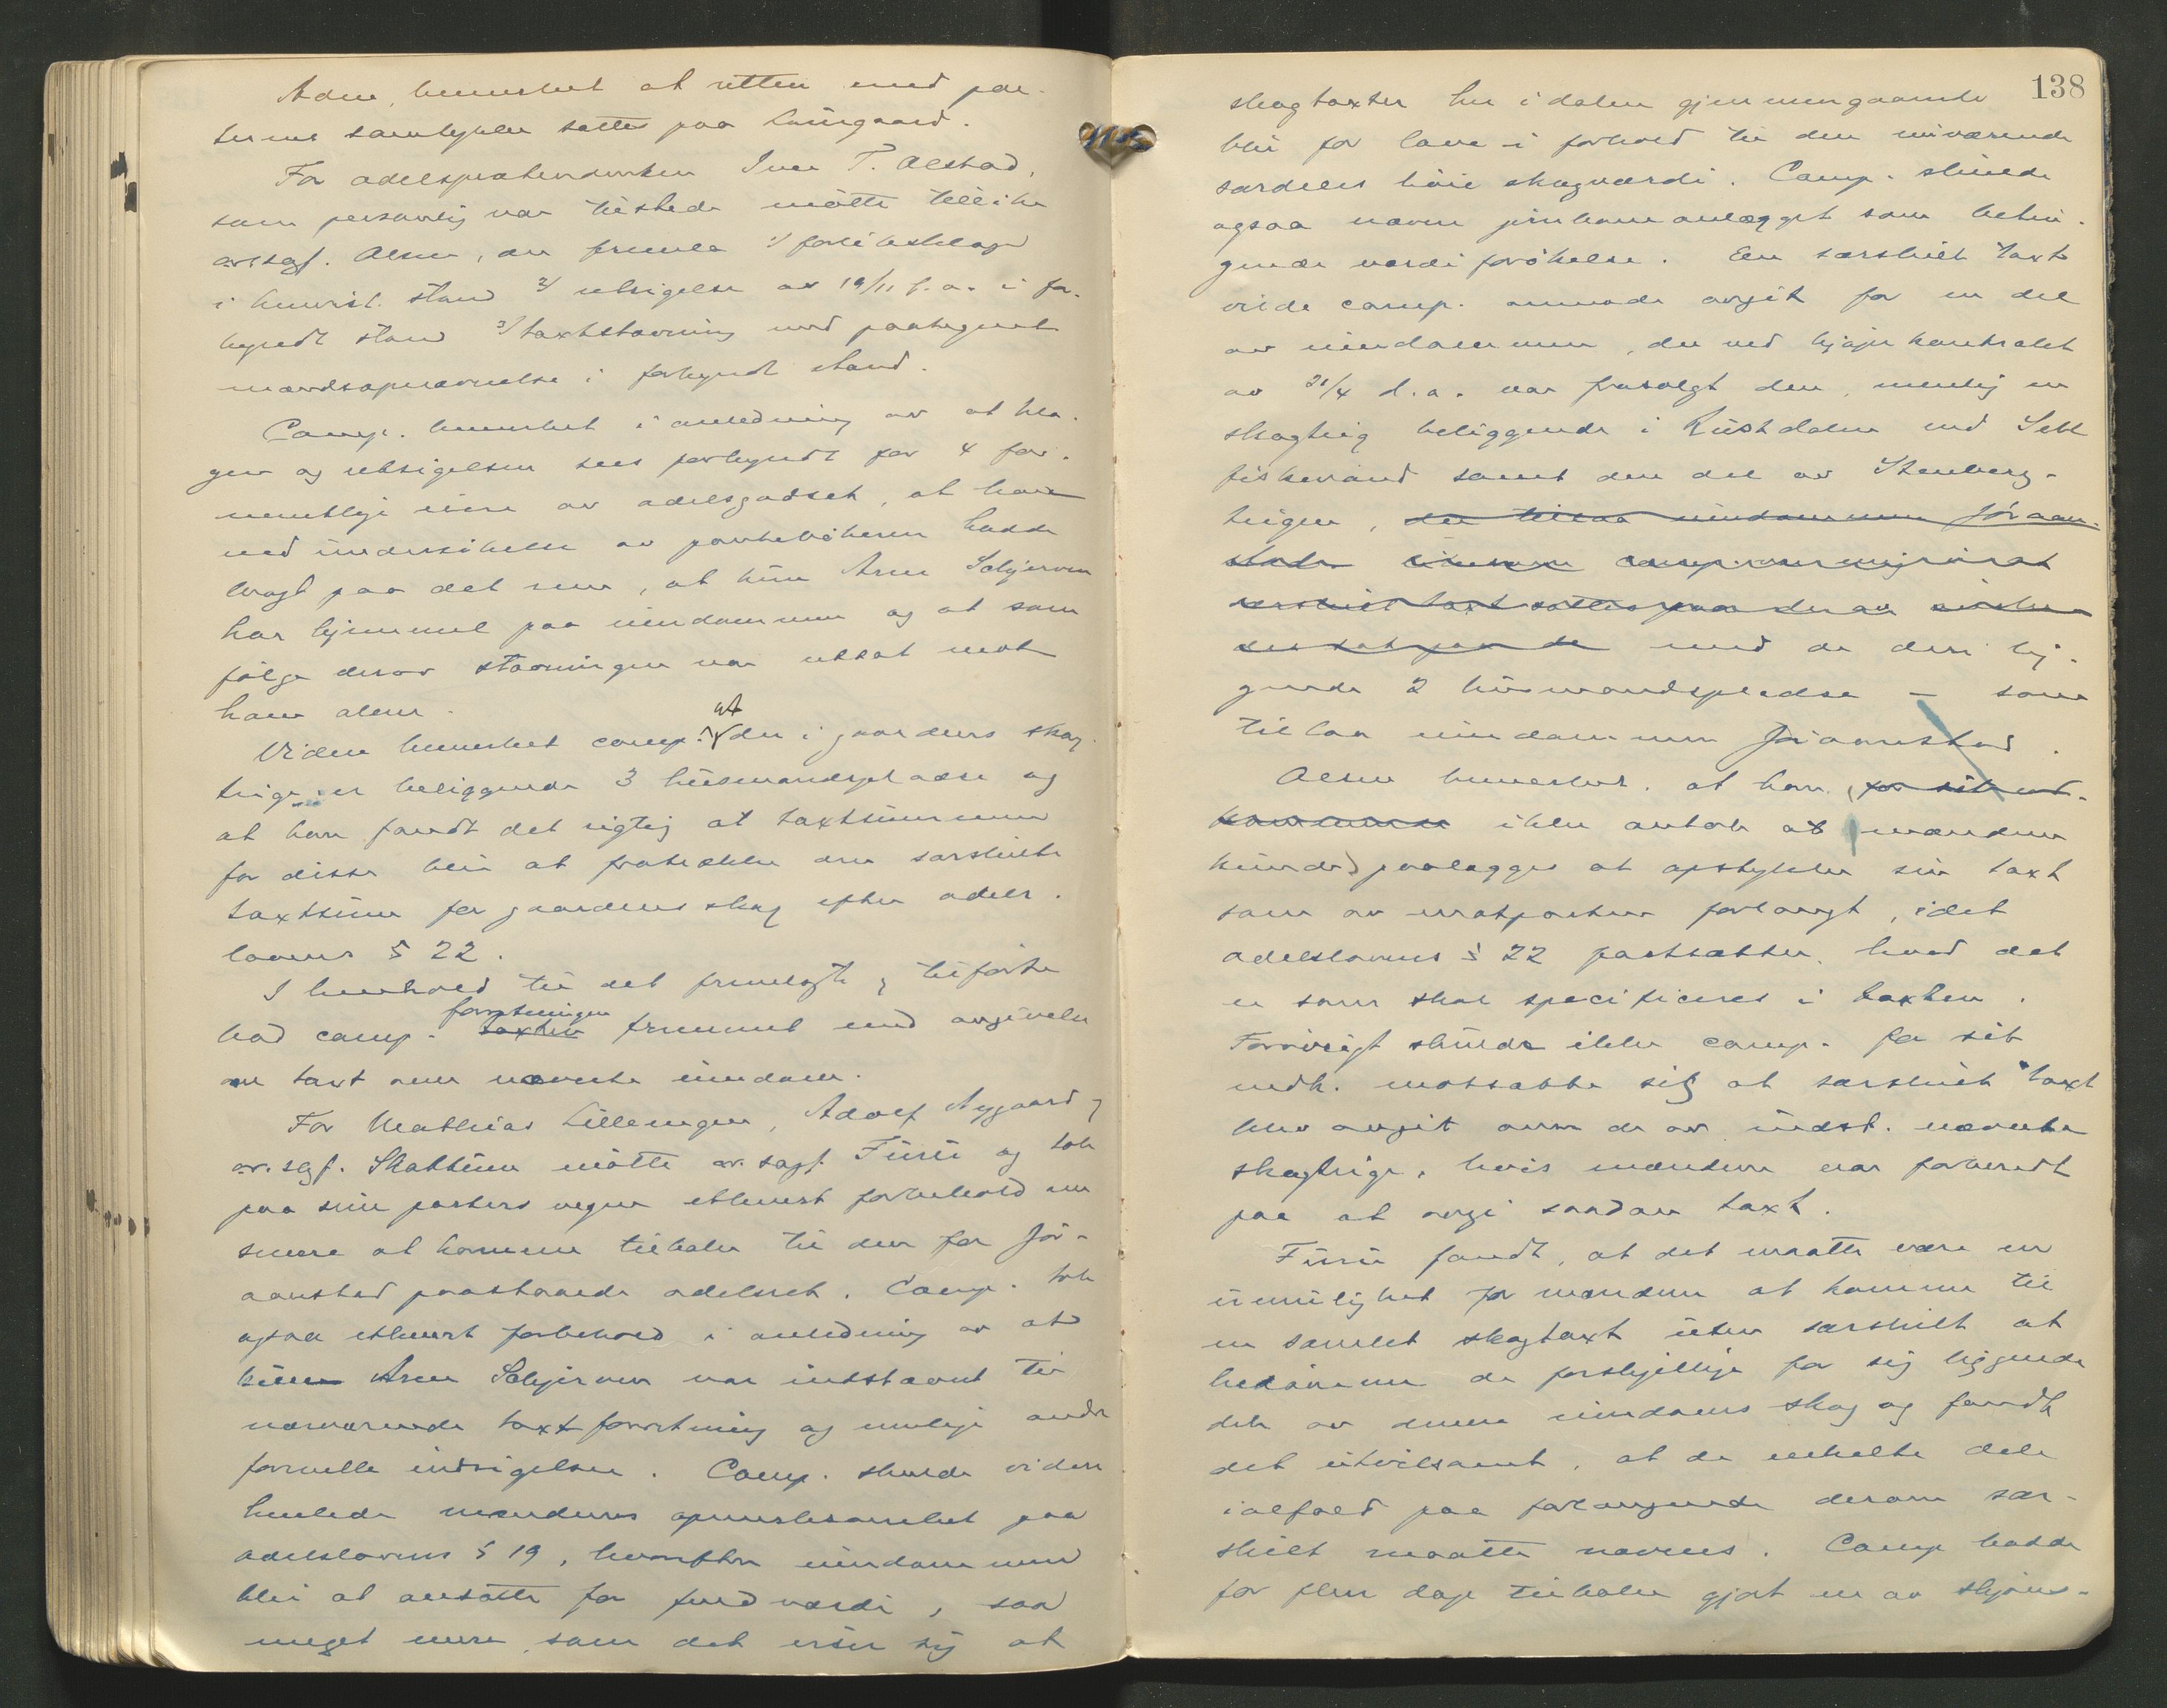 Adm. bemerket at retten med par-
ternes samtykke sattes paa Lurgaard.
For odelsprætendenten Iver T. Alstad,
som personlig var tilstede møtte tillike
o.r.sagf. Olsen, der fremla 1/ forliksklage
i henvist stand 2/ utsigelse av 19/11 f.a. i for-
kyndt stand 3/ taxtstævning med paategnet
mændsopnævnelse i forkyndt stand.
Comp. bemerket i anledning av at kla-
gen og utsigelsen sees forkyndt for 4 for.
mentlige eiere av odelsgodset, at han
ved undersøkelse av pantebøkerne hadde
bragt paa det rene, at kun Arne Schjerven
har hjemmel paa eiendommen og at som
følge derav stævningen var uttat mot
ham alene.
Videre bemerket comp. at der i gaardens skog
teiger er beliggende 3 husmandspladse og
at han fandt det rigtig at taxtsummen
for disse blir at fratrække den særskilte
taxtsum for gaardens skog efter odels-
lovens § 22.
I henhold til det fremlagte & tilførte
bad comp. forretningen taxten fremmet med avgivelse
av taxt over nævnte eiendom.
For Mathias Lillemoen, Adolf Nygaard &
o.r.sagf. Skattum møtte o.r.sagf. Furu og tok
paa sine parters vegne ethvert forbehold om
senere at komme tilbake til den for Jør-
aanstad paastaaede odelsret. Comp. tok
ogsaa ethvert forbehold i anledning av at
kun Arne Schjerven var indstævnt til
nærværende taxtforretning og mulige andre
formelle indsigelser. Comp. skulde videre
henlede mændenes opmerksomhet paa
odelslovens § 19, hvorefter eiendommen
blir at ansætte for fuld værdi, saa
meget mere som det viser sig at
138
skogtaxter her i dalen gjennemgaaende
blir for lave i forhold til den nuværende
særdeles høie skogværdi. Comp. skulde
ogsaa nævne jernbaneanlægget som betin-
gende værdiforøkelse. En særskilt taxt
vilde comp. anmode avgit for en del
av eiendommen, der ved kjøpekontrakt
av 21/4 d.a. var frasolgt den, nemlig en
skogteig beliggende i Rustdalen med Sell
fiskevand samt den del av Stenberg-
teigen, der tillaa eiendommen Jøraan-
stad
særskilt taxt sættes paa den av
med de deri lig-
gende 2 husmandspladse — som
tillaa eiendommen Jøraanstad.
Olsen bemerket, at han, for sit ved-
kommende ikke antok at mændene
kunde paalægges at opstykke sin taxt
som av motparten forlangt, idet
odelslovens § 22 fastsætter, hvad det
er som skal specificeres i taxten.
Forøvrigt skulde ikke comp. for sit
vedk. motsætte sig at særskilt taxt
blev avgit over de av indst. nævnte
skogteige, hvis mændene var forberedt
paa at avgi saadan taxt.
Furu fandt, at det maatte være en
umulighet for mændene at komme til
en samlet skogtaxt uten særskilt at
bedømme de forskjellige for sig liggende
dele av denne eiendoms skog og fandt
det utvilsomt, at de enkelte dele
ialfald paa forlangende derom sær-
skilt maatte nævnes. Comp hadde
for flere dage tilbake gjort en av skjøns-